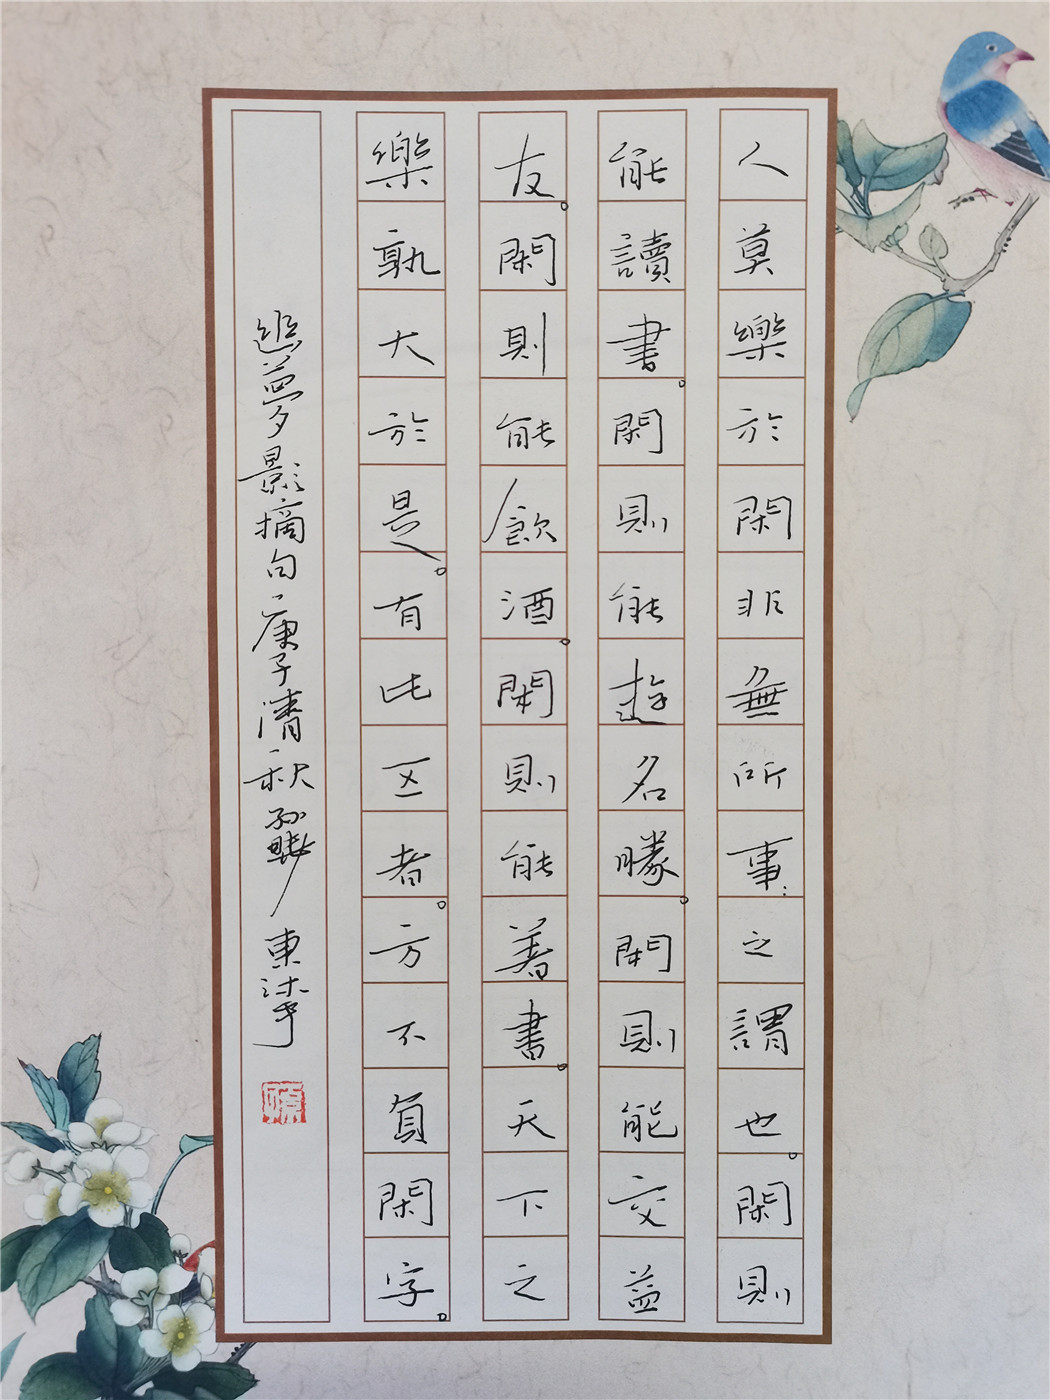 人莫樂於閑非無所事之謂也。閑則
能讀書。閑則能遊名勝。閑則能交益
友。閑則能飲酒。閑則能著書。天下之
樂孰大於是。有此五者。方不負閑字。
幽夢影摘句庚子清秋孫東津